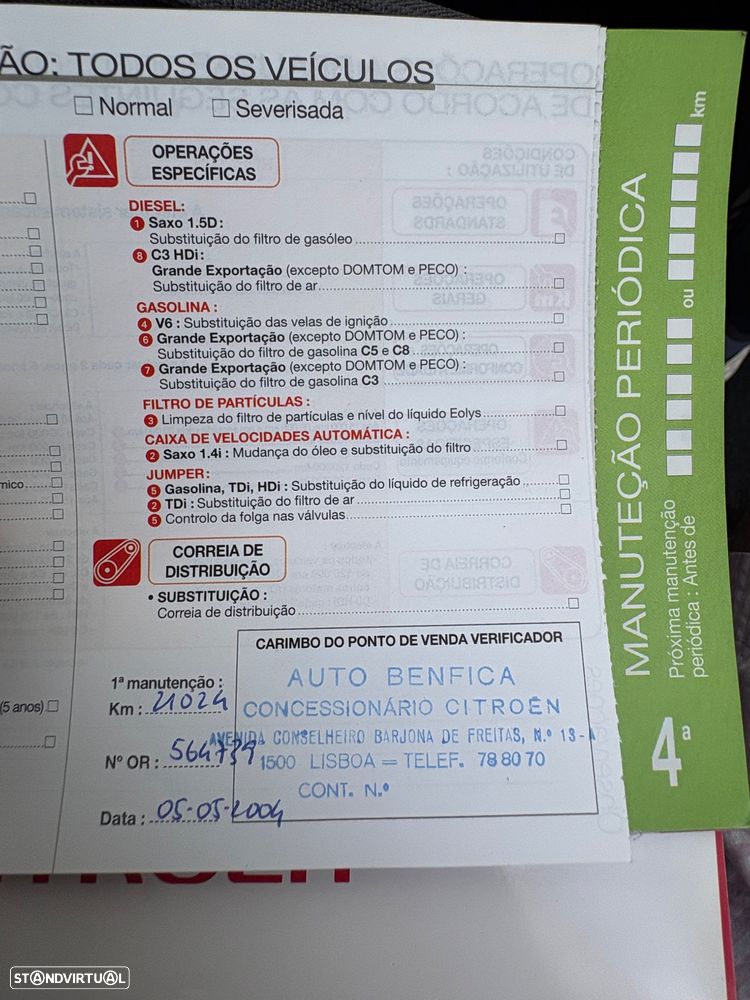 ÃO: TODOS OS VEÍCULOS
Normal Severisada
OPERAÇÕES
ESPECÍFICAS
DIESEL:
1 Saxo 1.5D:
Substituição do filtro de gasóleo
8 C3 HDi:
Grande Exportação (excepto DOMTOM e PECO) :
Substituição do filtro de ar
GASOLINA :
4 V6 : Substituição das velas de ignição
6 Grande Exportação (excepto DOMTOM e PECO) :
Substituição do filtro de gasolina C5 e C8
7 Grande Exportação (excepto DOMTOM e PECO) :
Substituição do filtro de gasolina C3
FILTRO DE PARTÍCULAS :
3 Limpeza do filtro de partículas e nível do líquido Eolys
CAIXA DE VELOCIDADES AUTOMÁTICA :
2 Saxo 1.4i : Mudança do óleo e substituição do filtro
JUMPER:
5 Gasolina, TDi, HDi : Substituição do líquido de refrigeração
2 TDi : Substituição do filtro de ar
5 Controlo da folga nas válvulas
mico
CORREIA DE
DISTRIBUIÇÃO
• SUBSTITUIÇÃO :
Correia de distribuição
(5 anos)
1ª manutenção :
Km : 21024
Nº OR : 564739
Data : 05-05-2004
CARIMBO DO PONTO DE VENDA VERIFICADOR
AUTO BENFICA
CONCESSIONÁRIO CITROËN
AVENIDA CONSELHEIRO BARJONA DE FREITAS, N.º 13-A
1500 LISBOA = TELEF. 78 80 70
CONT. N.º
4ª MANUTEÇÃO PERIÓDICA
Próxima manutenção
periódica : Antes de ou km
STANDVIRTUAL